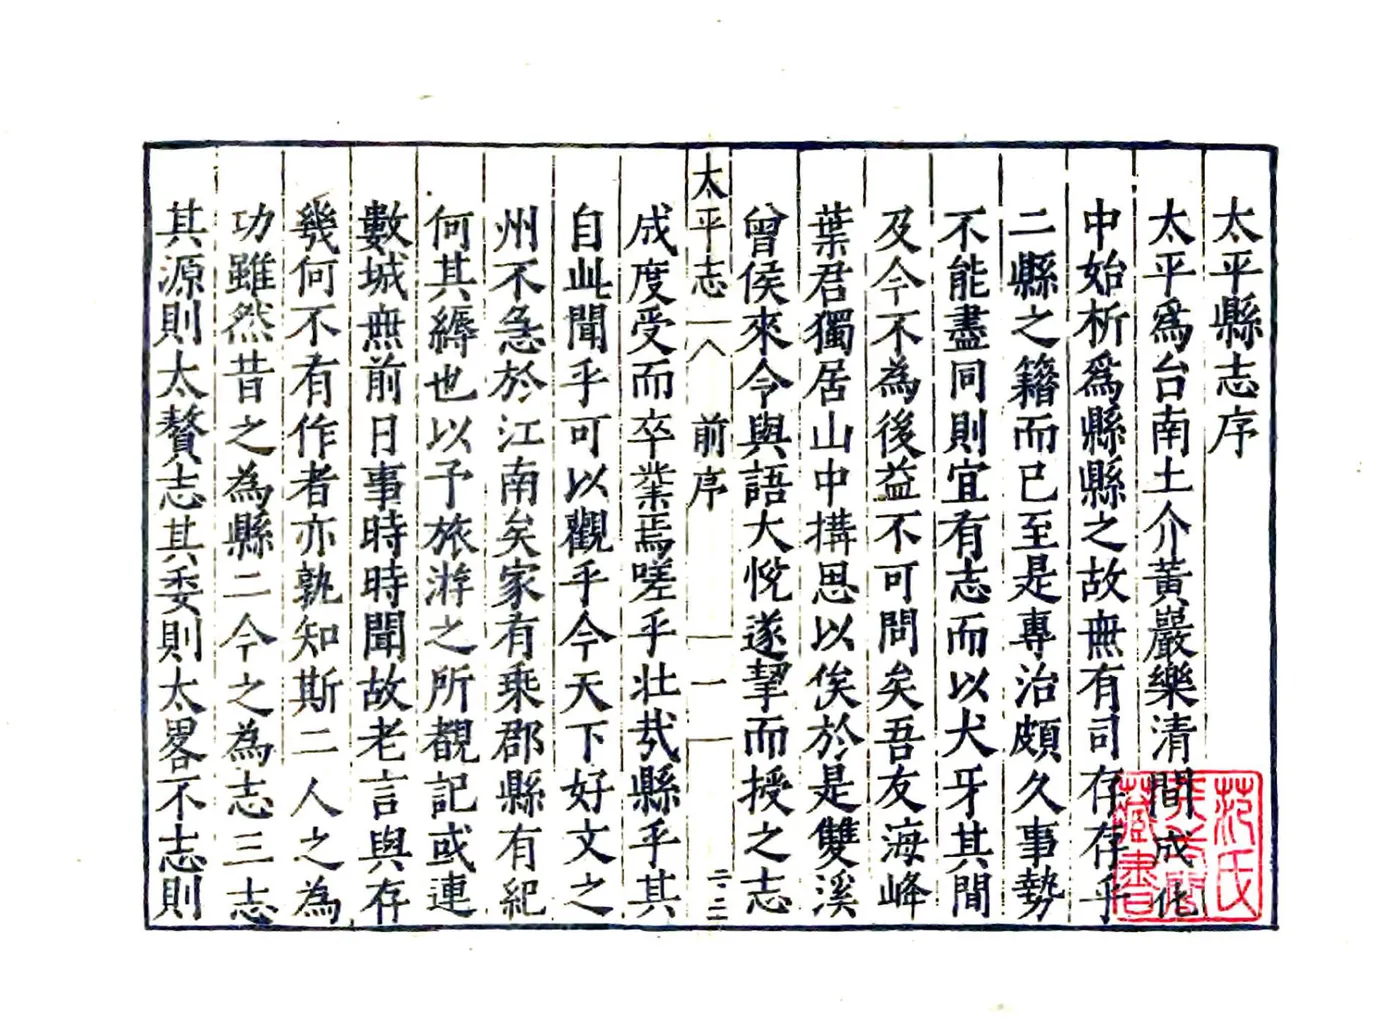 太平縣志序
太平爲台南土介黃巖樂清間成化
中始析爲縣縣之故無有司存存乎
二縣之籍而已至是專治頗久事勢
不能盡同則宜有志而以犬牙其間
及今不為後益不可問矣吾友海峰
葉君獨居山中搆思以俟於是雙溪
曾侯來令與語大悅遂挈而授之志
太平志 前序 一
成度受而卒業焉嗟乎壯哉縣乎其
自此聞乎可以觀乎今天下好文之
州不急於江南矣家有乘郡縣有紀
何其縟也以予旅游之所覩記或連
數城無前日事時時聞故老言與存
幾何不有作者亦孰知斯二人之為
功雖然昔之為縣二今之為志三志
其源則太贅志其委則太畧不志則
范氏天一閣藏書